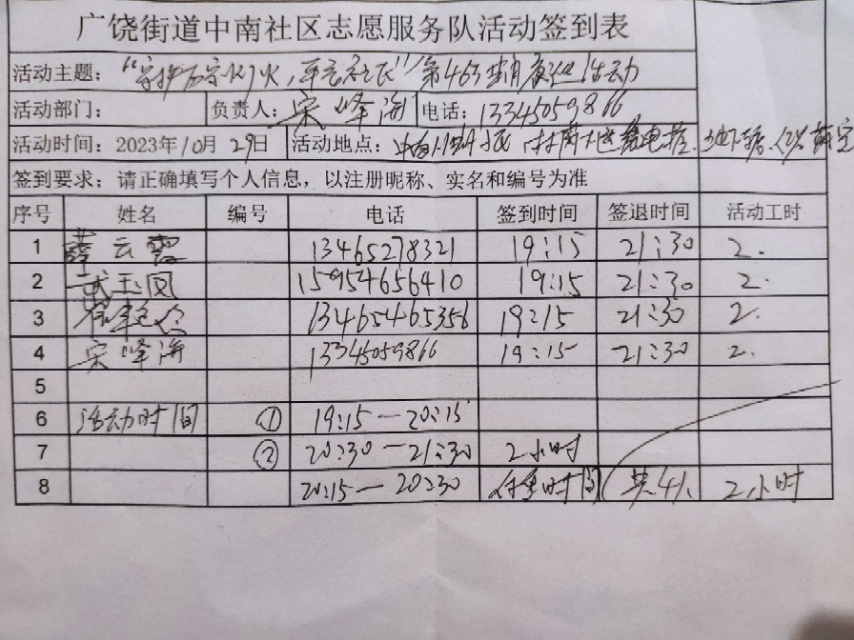 广饶街道中南社区志愿服务队活动签到表
活动主题：“守护万家灯火，第463期夜巡活动
活动部门： 负责人：宋峰海 电话：13345059866
活动时间：2023年10月29日 活动地点：中南
签到要求：请正确填写个人信息，以注册昵称、实名和编号为准
序号 姓名 编号 电话 签到时间 签退时间 活动工时
1 薛云霞 13465278321 19:15 21:30 2.
2 武玉凤 159154656410 19:15 21:30 2.
3 13465465356 19:15 21:30 2.
4 宋峰海 13345059866 19:15 21:30 2.
5
6 活动时间 ① 19:15—20:15
7 ② 20:30—21:30 2小时
8 20:15—20:30 休息时间 共4人 2小时